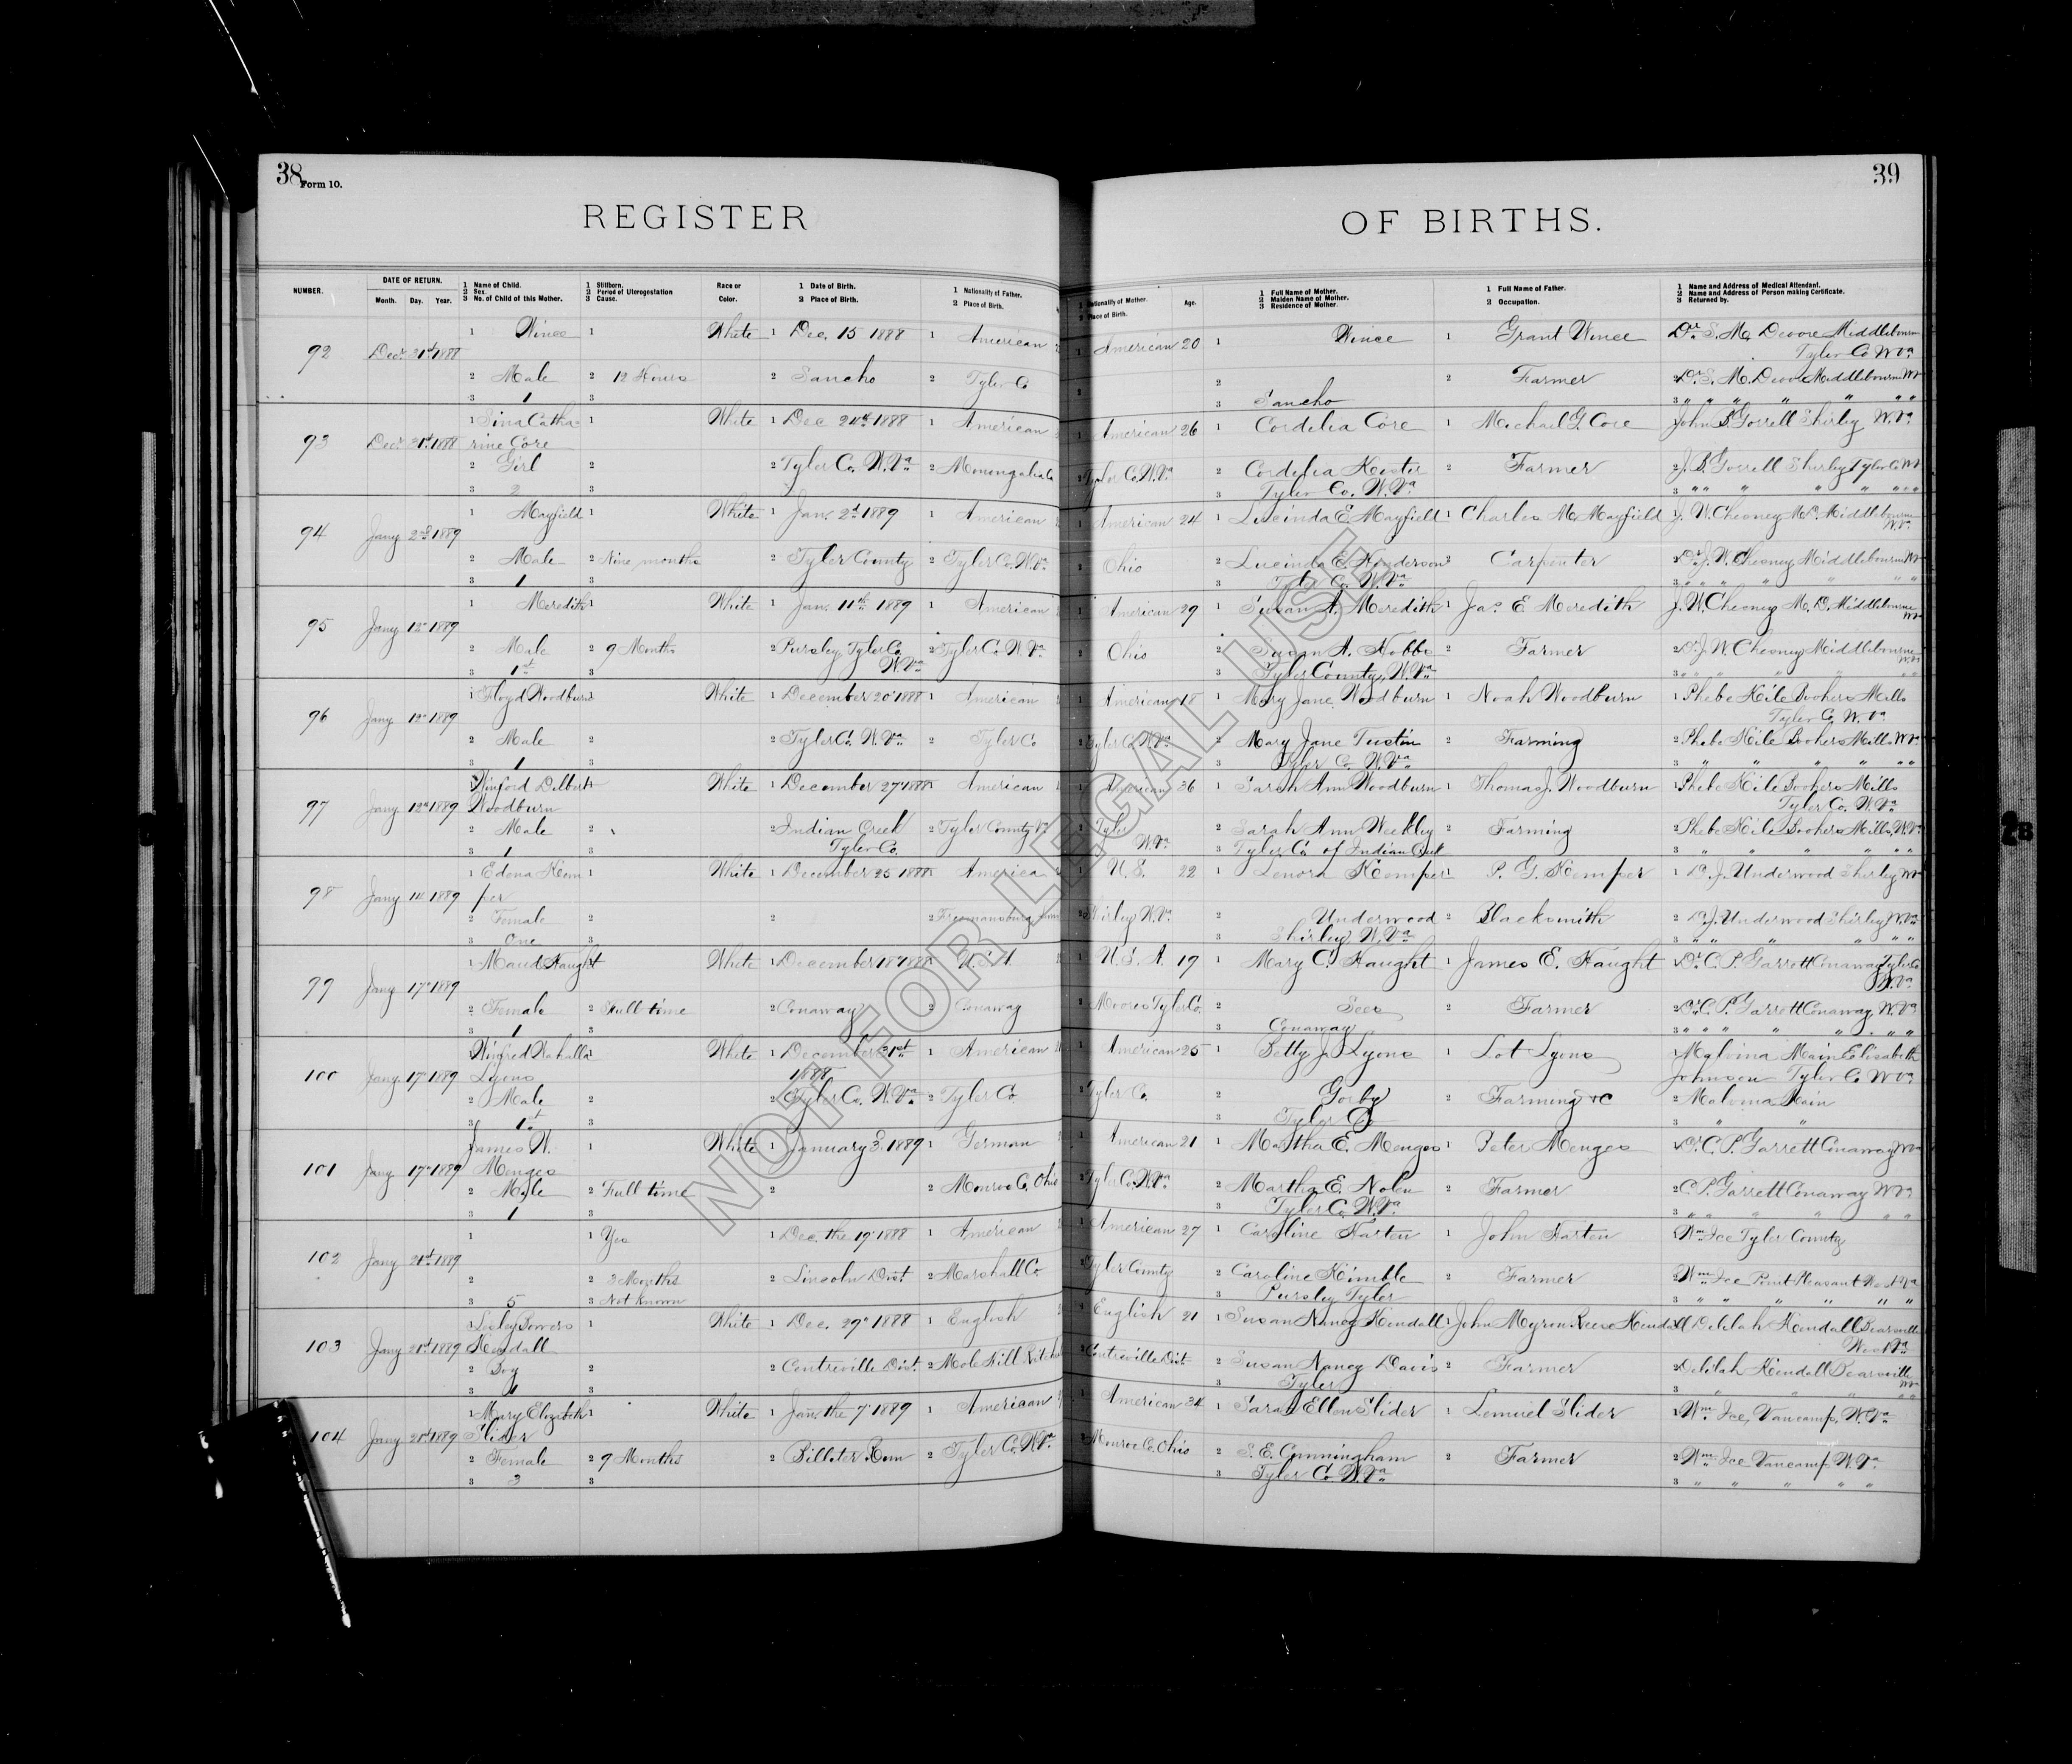 38
Form 10.
39
REGISTER OF BIRTHS.
NUMBER. DATE OF RETURN. Month. Day. Year.
1 Name of Child. 2 Sex. 3 No. of Child of this Mother.
1 Stillborn. 2 Period of Uterogestation 3 Cause.
Race or Color.
1 Date of Birth. 2 Place of Birth.
1 Nationality of Father. 2 Place of Birth.
Nationality of Mother. Place of Birth.
Age.
1 Full Name of Mother. 2 Maiden Name of Mother. 3 Residence of Mother.
1 Full Name of Father. 2 Occupation.
1 Name and Address of Medical Attendant. 2 Name and Address of Person making Certificate. 3 Returned by.
92 Decr 31st 1888 1 Wince 1 White 1 Dec. 15 1888 1 American 1 American 20 1 Wince 1 Grant Wince Dr. S. M. Devore Middlebourne
Tyler Co W Va
2 Male 2 12 Hours 2 Sancho 2 Tyler Co 2 2 2 Farmer 2 Dr. S. M. Devore Middlebourne W Va
3 1 3 3 Sancho 3 " " " " " " "
93 Decr 31st 1888 1 Sina Catha- 1 White 1 Dec 24th 1888 1 American 1 American 26 1 Cordelia Core 1 Michael G. Core John B. Gorrell Shirley W. Va
rine Core
2 Girl 2 2 Tyler Co. W. Va 2 Monongalia Co 2 Tyler Co. W. Va 2 Cordelia Kester 2 Farmer 2 J. B. Gorrell Shirley Tyler Co W Va
3 2 3 3 Tyler Co. W. Va 3 " " " " " " " "
94 Jany 2nd 1889 1 Mayfield 1 White 1 Jan. 2d 1889 1 American 1 American 24 1 Lucinda E. Mayfield 1 Charles M. Mayfield 1 J. W. Cheoney M.D. Middlebourne
W. Va
2 Male 2 Nine months 2 Tyler County 2 Tyler Co. W. Va 2 Ohio 2 Lucinda E. Henderson 2 Carpenter 2 Dr. J. W. Cheoney Middlebourne W Va
3 1 3 3 Tyler Co. W. Va 3 " " " " " " "
95 Jany 12 1889 1 Meredith 1 White 1 Jan. 11th 1889 1 American 1 American 29 1 Susan A. Meredith 1 Jas. E Meredith J. W. Cheoney M. D. Middlebourne
W Va
2 Male 2 9 Months 2 Pursley Tyler Co 2 Tyler Co W. Va 2 Ohio 2 Susan A. Hobbs 2 Farmer 2 Dr. J. W. Cheoney Middlebourne
W. Va W. Va
3 1st 3 3 Tyler County, W. Va 3 " " " " " " "
96 Jany 12 1889 1 Floyd Woodburn 1 White 1 December 20 1888 1 American 1 American 18 1 Mary Jane Woodburn 1 Noah Woodburn 1 Phebe Kile Bookers Mills
Tyler Co. W. Va
2 Male 2 2 Tyler Co. W. Va 2 Tyler Co 2 Tyler Co W Va 2 Mary Jane Tustin 2 Farming 2 Phebe Kile Bookers Mills W Va
3 1 3 3 Tyler Co. W. Va 3 " " " " " "
97 Jany 12 1889 1 Winford Delbert 1 White 1 December 27 1888 1 American 1 American 36 1 Sarah Ann Woodburn 1 Thomas J. Woodburn 1 Phebe Kile Bookers Mills
Woodburn Tyler Co. W. Va
2 Male 2 2 Indian Creek 2 Tyler County Va 2 Tyler 2 Sarah Ann Weekley 2 Farming 2 Phebe Kile Bookers Mills, W. Va
Tyler Co. W. Va
3 1 3 3 Tyler Co. of Indian Creek 3 " " " " " "
98 Jany 14 1889 1 Edena Kem 1 White 1 December 25 1888 1 America 1 U. S. 22 1 Lenora Kemper 1 P. G. Kemper 1 D. J. Underwood Shirley W Va
per
2 Female 2 2 2 2 Shirley W. Va 2 Underwood 2 Blacksmith 2 D. J. Underwood Shirley W. Va
3 One 3 3 Shirley W. Va 3 " " " " " "
99 Jany 17 1889 1 Maud Haught 1 White 1 December 18 1888 1 U. S. A. 1 U. S. A. 19 1 Mary C. Haught 1 James E. Haught 1 Dr. C. P. Garrett Conaway Tyler Co
W. Va
2 Female 2 Full time 2 Conaway 2 Conaway 2 Moores Tyler Co. 2 Sees 2 Farmer 2 Dr. C. P. Garrett Conaway, W. Va
3 1 3 3 Conaway 3 " " " " " " "
100 Jany. 17 1889 1 Winfred Wahalla 1 White 1 December 31st 1 American 1 American 25 1 Betty J. Lyons 1 Lot Lyons 1 Malvina Main Elisabeth
Lyons 1888 Johnson Tyler Co W Va
2 Male 2 2 Tyler Co. W. Va 2 Tyler Co. 2 Tyler Co. 2 Gorby 2 Farming &C 2 Malvina Main
3 1st 3 3 Tyler Co 3 " "
101 Jany 17 1889 James W. 1 White 1 January 3 1889 1 German 1 American 21 1 Martha E. Menges 1 Peter Menges 1 Dr. C. P. Garrett Conaway W Va
Menges
2 Male 2 Full time 2 2 Monroe Co. Ohio 2 Tyler Co. W. Va 2 Martha E. Nolen 2 Farmer 2 C. P. Garrett Conaway W Va
3 1 3 3 Tyler Co. W. Va 3 " " " " " "
102 Jany 21st 1889 1 1 Yes 1 Dec. the 19 1888 1 American 1 American 27 1 Caroline Harten 1 John Harten 1 Wm Ice Tyler County
2 2 3 Months 2 Lincoln Dist. 2 Marshall Co. 2 Tyler County 2 Caroline Kimble 2 Farmer 2 Wm Ice Point Pleasant West Va
3 5 3 Not known 3 Pursley Tyler 3 " " " " " "
103 Jany 21st 1889 1 Lesley Bowers 1 White 1 Dec. 29 1888 1 English 1 English 21 1 Susan Nancy Kendall 1 John Myron Reese Kendall 1 Delilah Kendall Bearsville
Kendall West Va
2 Boy 2 2 Centreville Dist. 2 Mole Hill Ritchie 2 Centreville Dist 2 Susan Nancy Davis 2 Farmer 2 Delilah Kendall Bearsville
W Va
3 1 3 3 Tyler 3 " " " " "
104 Jany 21st 1889 1 Mary Elizabeth 1 White 1 Jan. the 7 1889 1 American 1 American 34 1 Sarah Ellen Slider 1 Lemuel Slider 1 Wm Ice, Vancamp, W. Va
Slider
2 Female 2 9 Months 2 Billster Run 2 Tyler Co. W. Va 2 Monroe Co. Ohio 2 S. E. Cunningham 2 Farmer 2 Wm Ice Vancamp W. Va
3 3 3 3 Tyler Co. W. Va 3 " " " " "
NOT FOR LEGAL USE